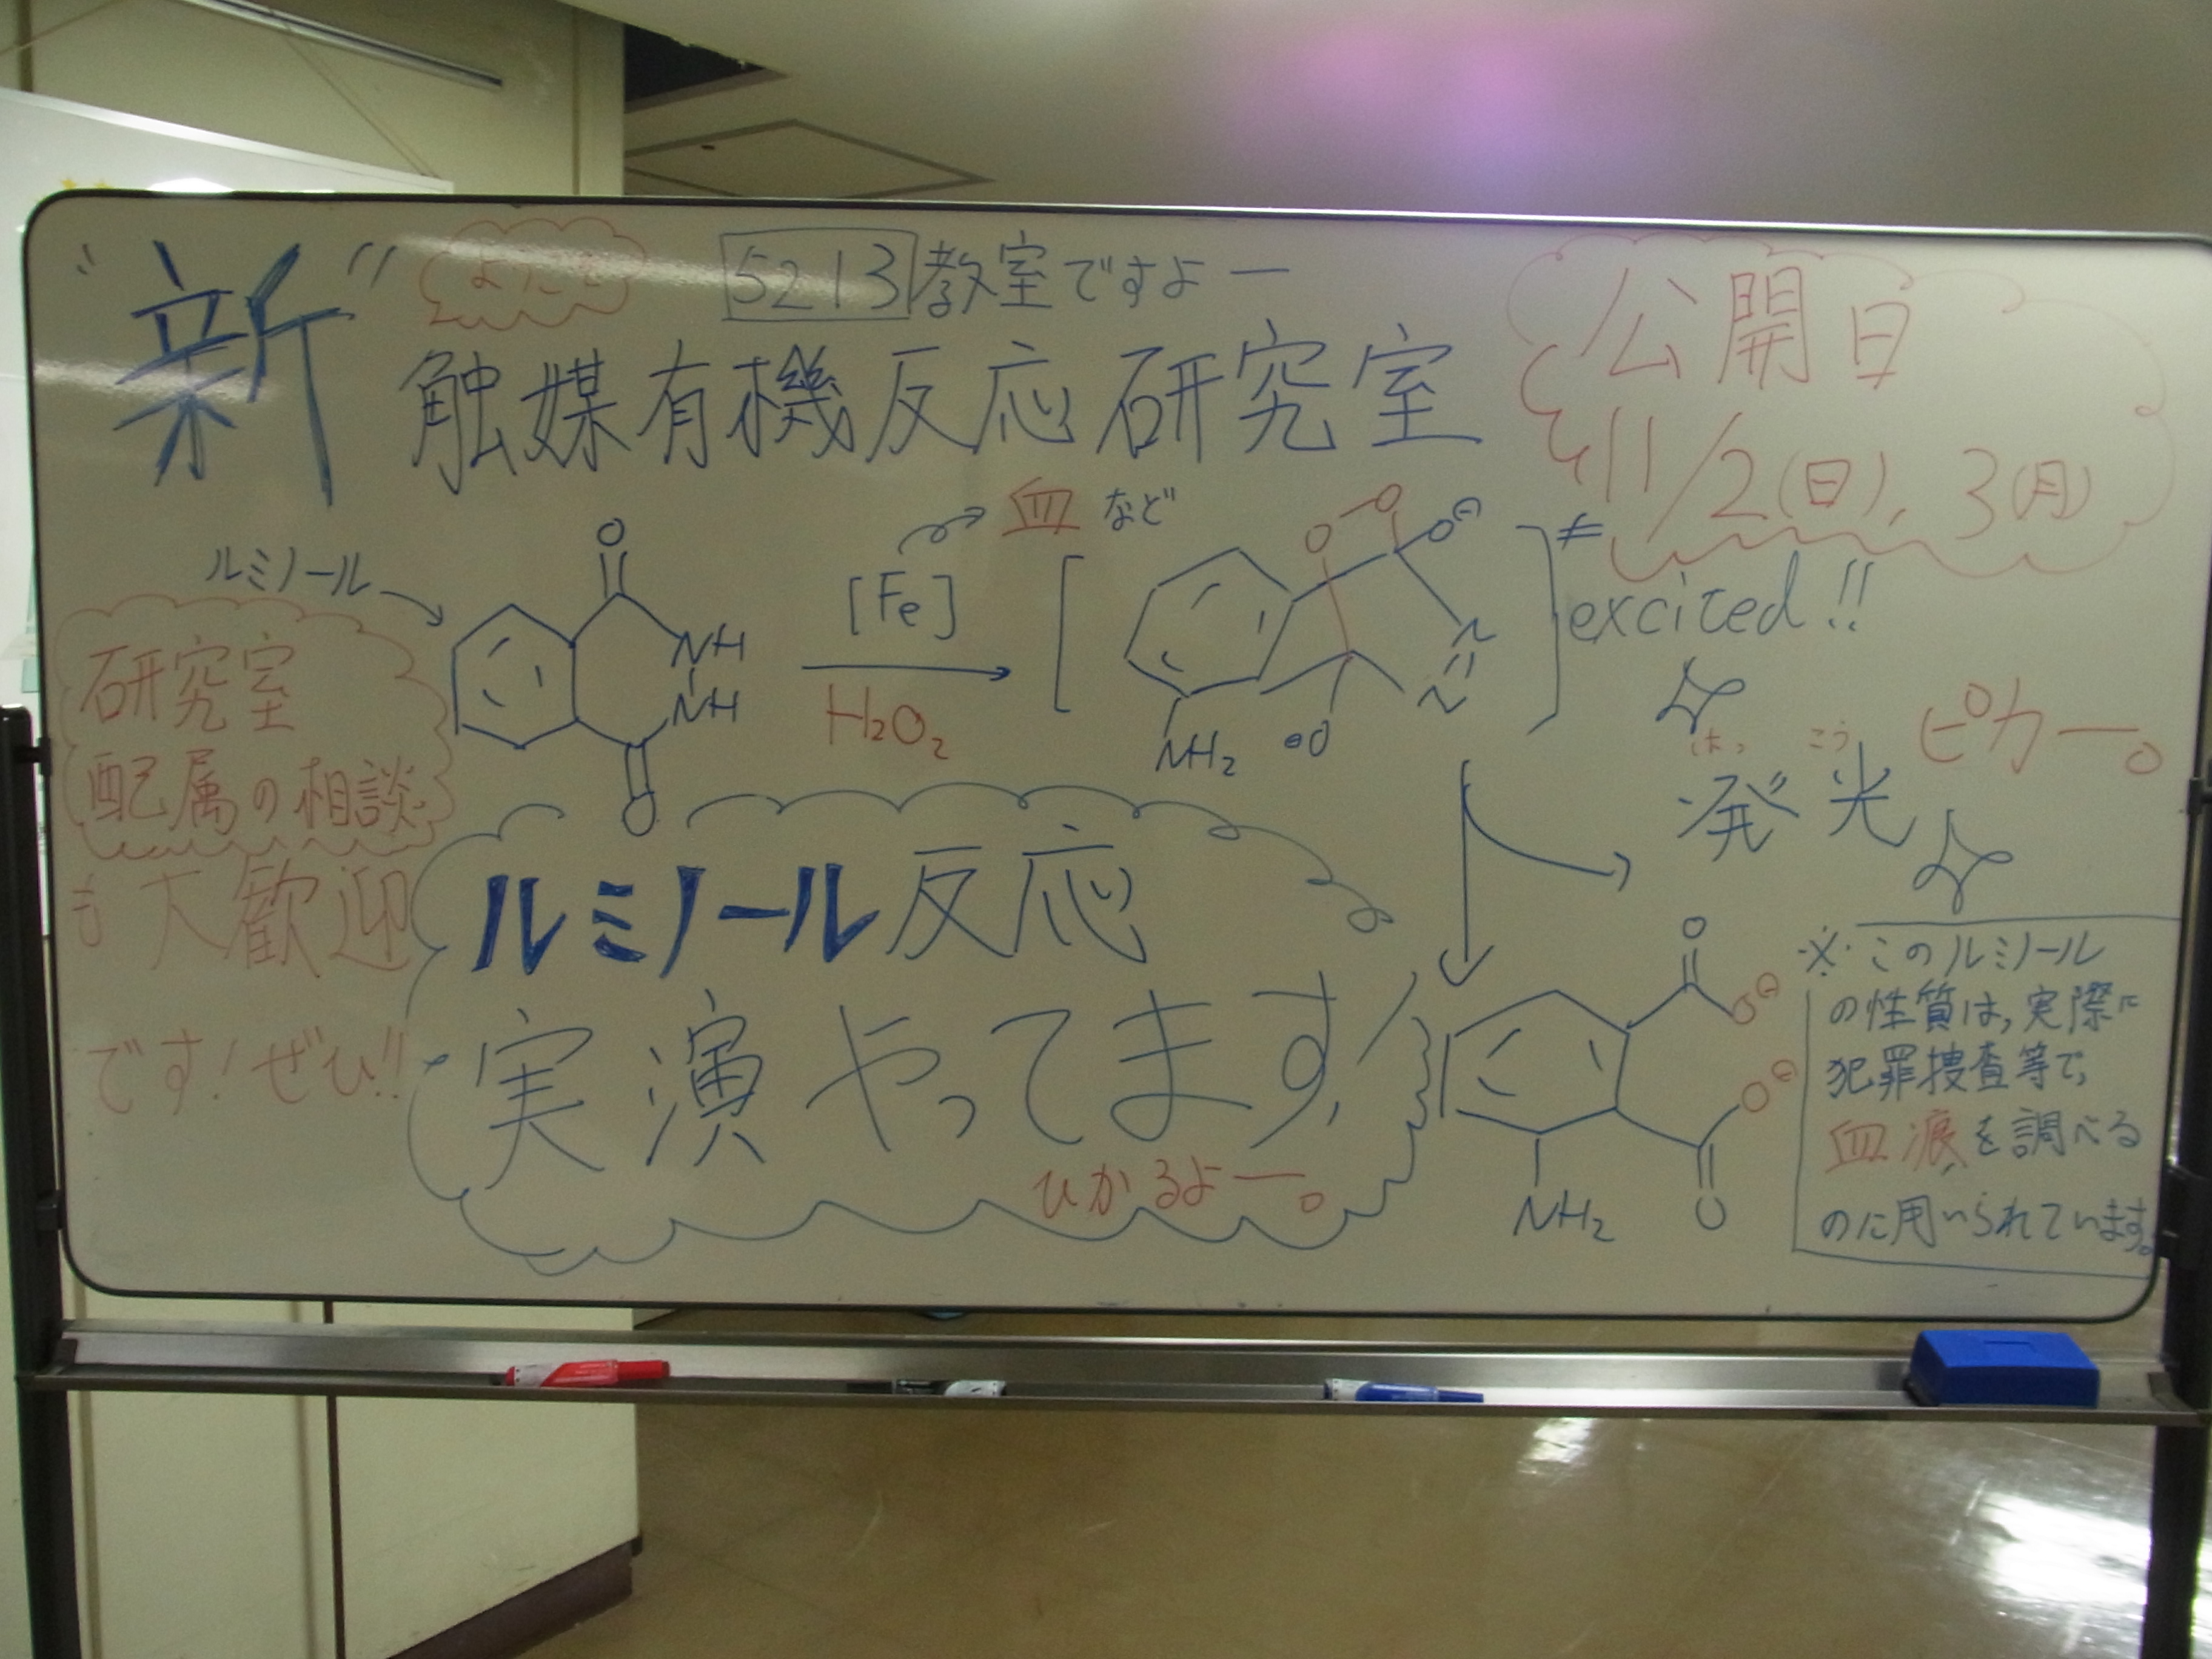 "新"
ようこそ
5213教室ですよー
触媒有機反応研究室
公開日
11/2(日), 3(月)
ルミノール
O
NH
NH
O
[Fe]
血など
H₂O₂
[
O
O
O⊖
N
N
NH₂
⊖O
]≠
excited!!
はっ こう
発光
ピカー。
研究室
配属の相談
も大歓迎
です!ぜひ!!
ルミノール反応
実演やってます!
ひかるよー。
O
O⊖
O⊖
O
NH₂
※このルミノール
の性質は,実際に
犯罪捜査等で,
血痕を調べる
のに用いられています。